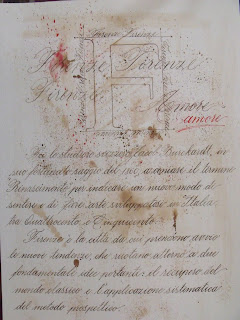 Firenze Firenze
Firenze Amore
amore
Fu lo studioso svizzero Jacob Burckhardt, in
suo saggio del 1860, a coniare il termine
Rinascimento per indicare un nuovo modo di
sentire e di fare arte sviluppatosi in Italia
tra Quattrocento e Cinquecento.
Firenze è la città da cui prendono avvio
le nuove tendenze, che ruotano attorno a due
fondamentali idee portanti: il recupero del
mondo classico e l'applicazione sistematica
del metodo prospettico.